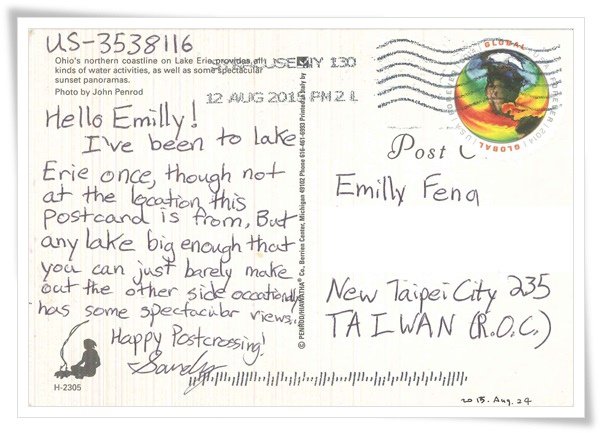 US-3538116
Ohio's northern coastline on Lake Erie provides all
kinds of water activities, as well as some spectacular
sunset panoramas.
Photo by John Penrod
NY 130
12 AUG 2015 PM 2 L
GLOBAL
FOREVER
USA
2014
GLOBAL
Hello Emilly!
I've been to lake
Erie once, though not
at the location this
postcard is from, But
any lake big enough that
you can just barely make
out the other side occationally
has some spectacular views.
Happy Postcrossing!
Sandy
H-2305
© PENROD/HIAWATHA® Co., Berrien Center, Michigan 49102 Phone 616-461-6993 Printed in Italy by
Post C
Emilly Feng
New Taipei City 235
TAIWAN (R.O.C.)
2015. Aug. 24